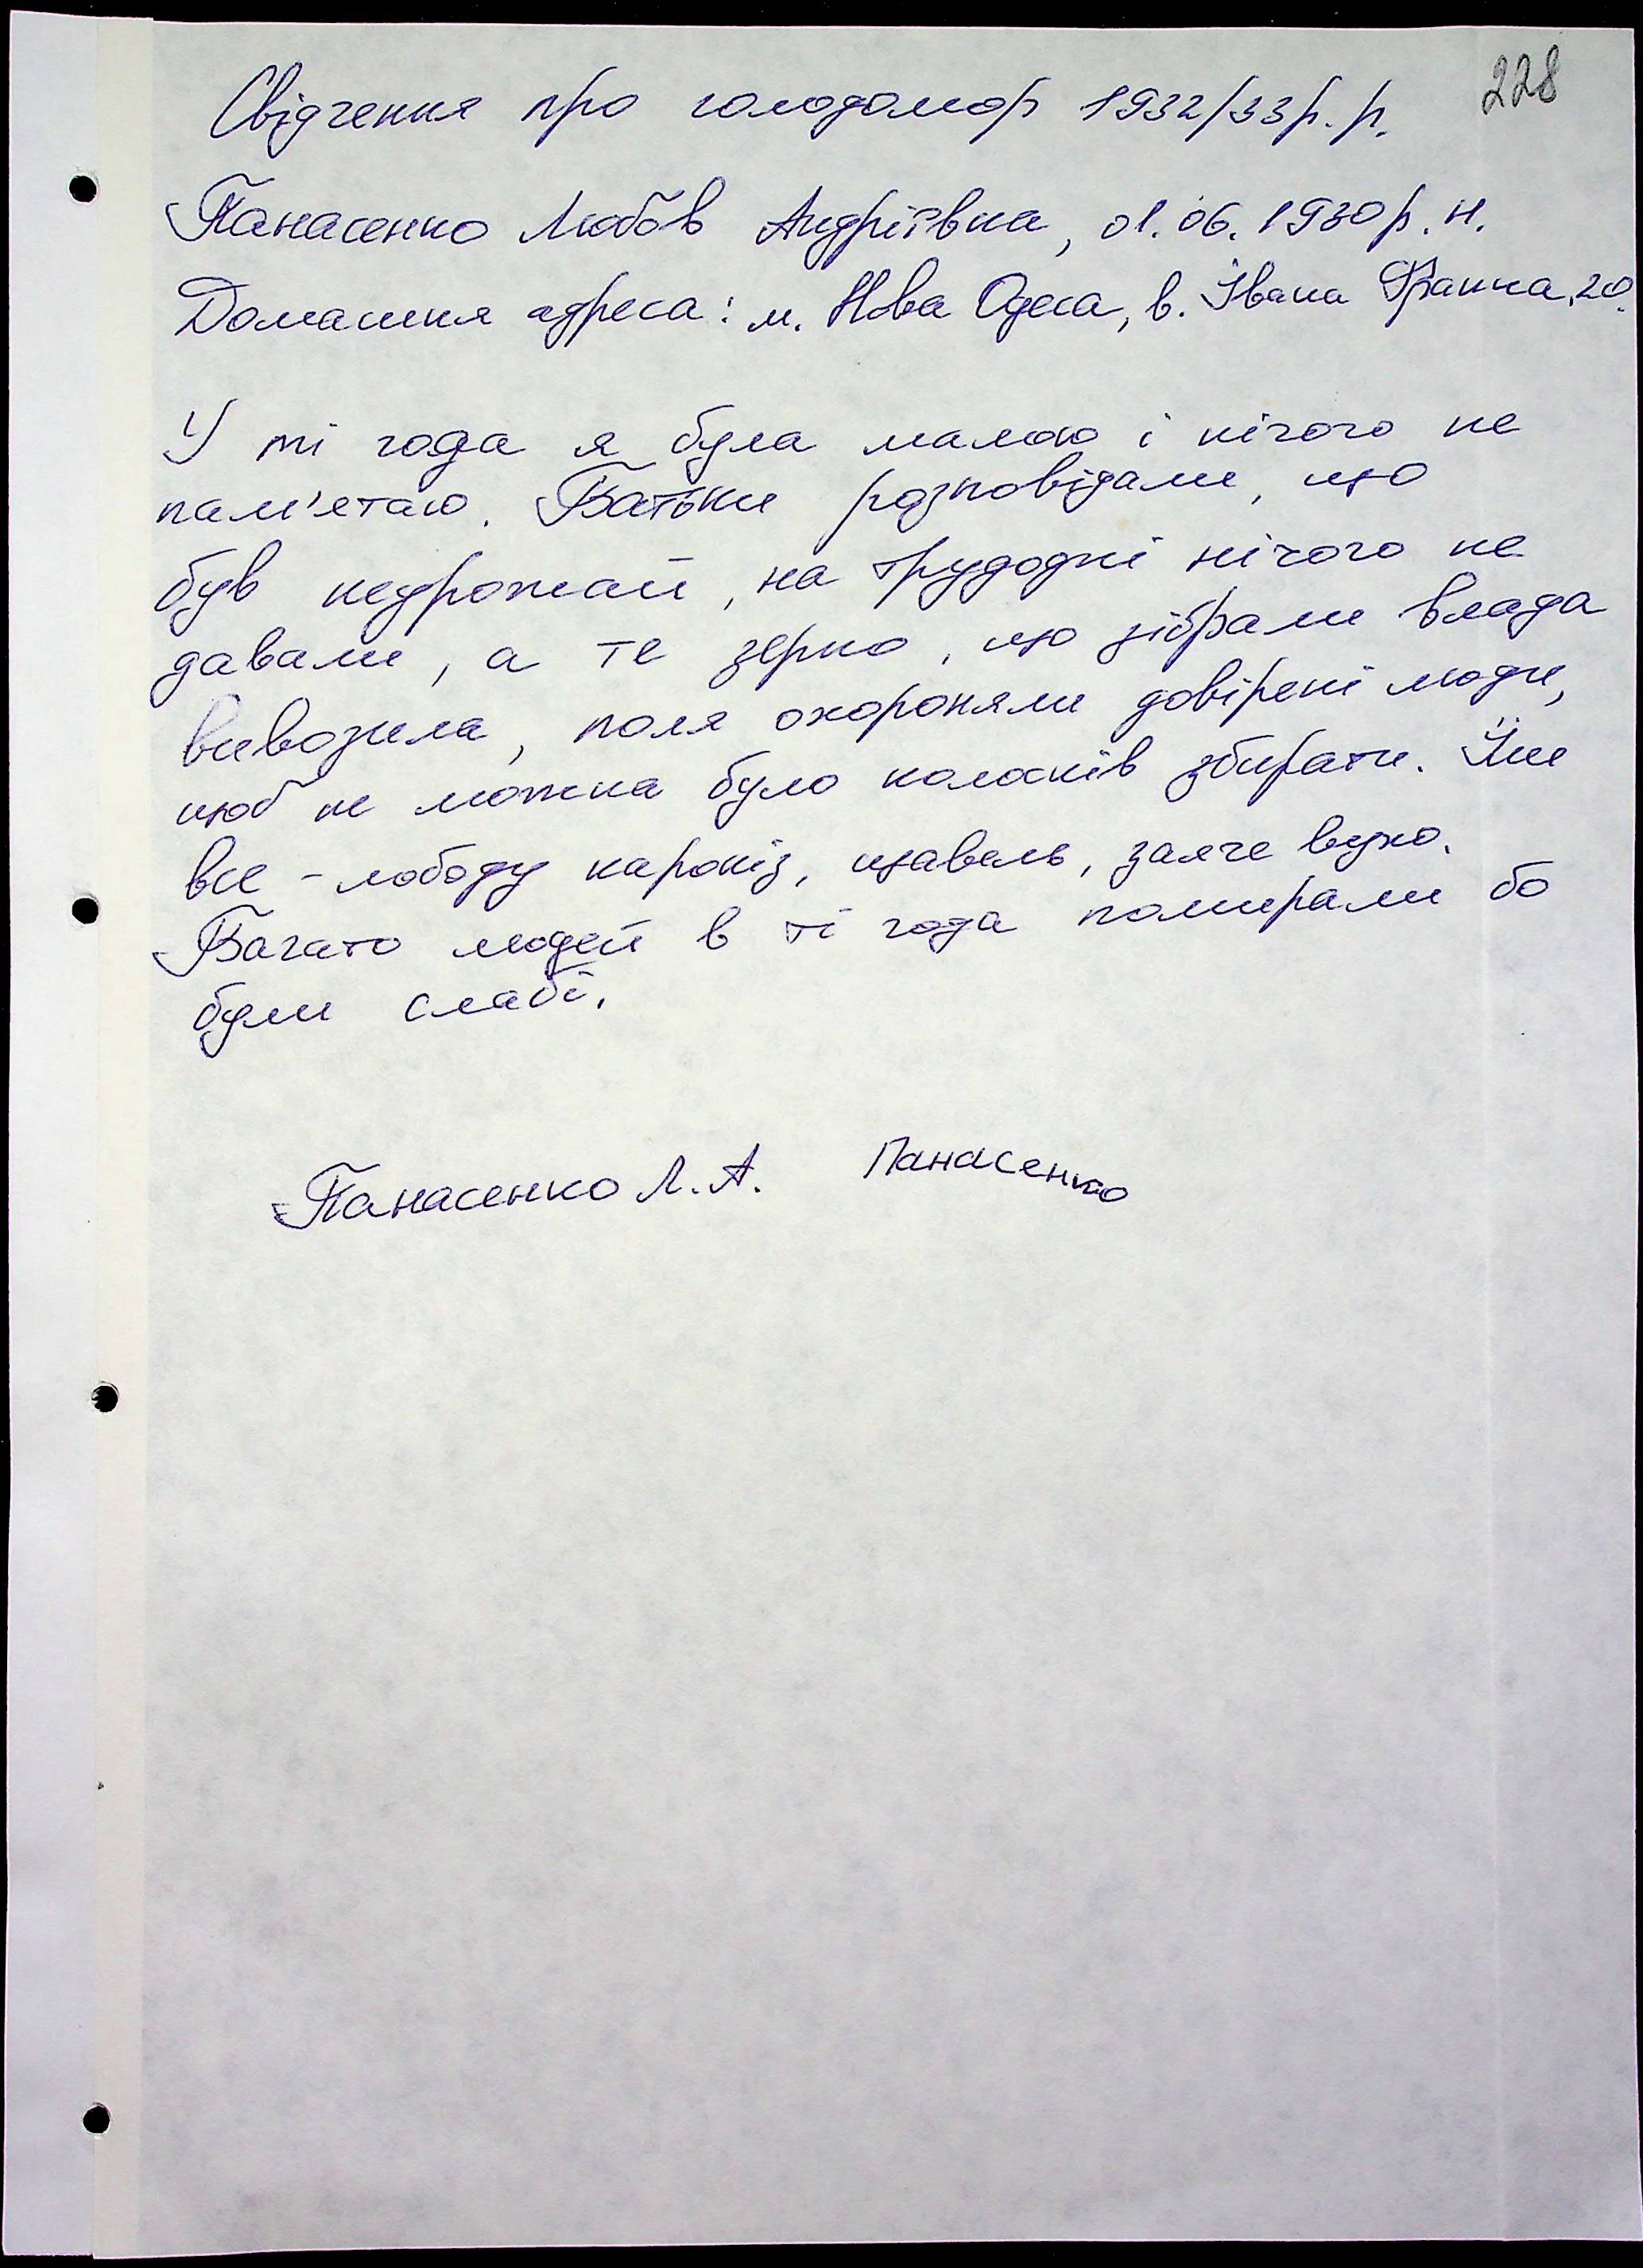 228
Свідчення про голодомор 1932/33 р. р.
Панасенко Любов Андріївна, 01.06.1930 р. н.
Домашня адреса: м. Нова Одеса, в. Івана Франка, 20.
У ті года я була малою і нічого не
пам'ятаю. Батьки розповідали, що
був неурожай, на трудодні нічого не
давали, а те зерно, що зібрали влада
вивозила, поля охороняли довірені люди,
щоб не можна було колосків збирати. Їли
все - лободу, щавель, заяче вухо.
Багато людей в ті года помирали бо
були слабі.
Панасенко Л. А. Панасенко